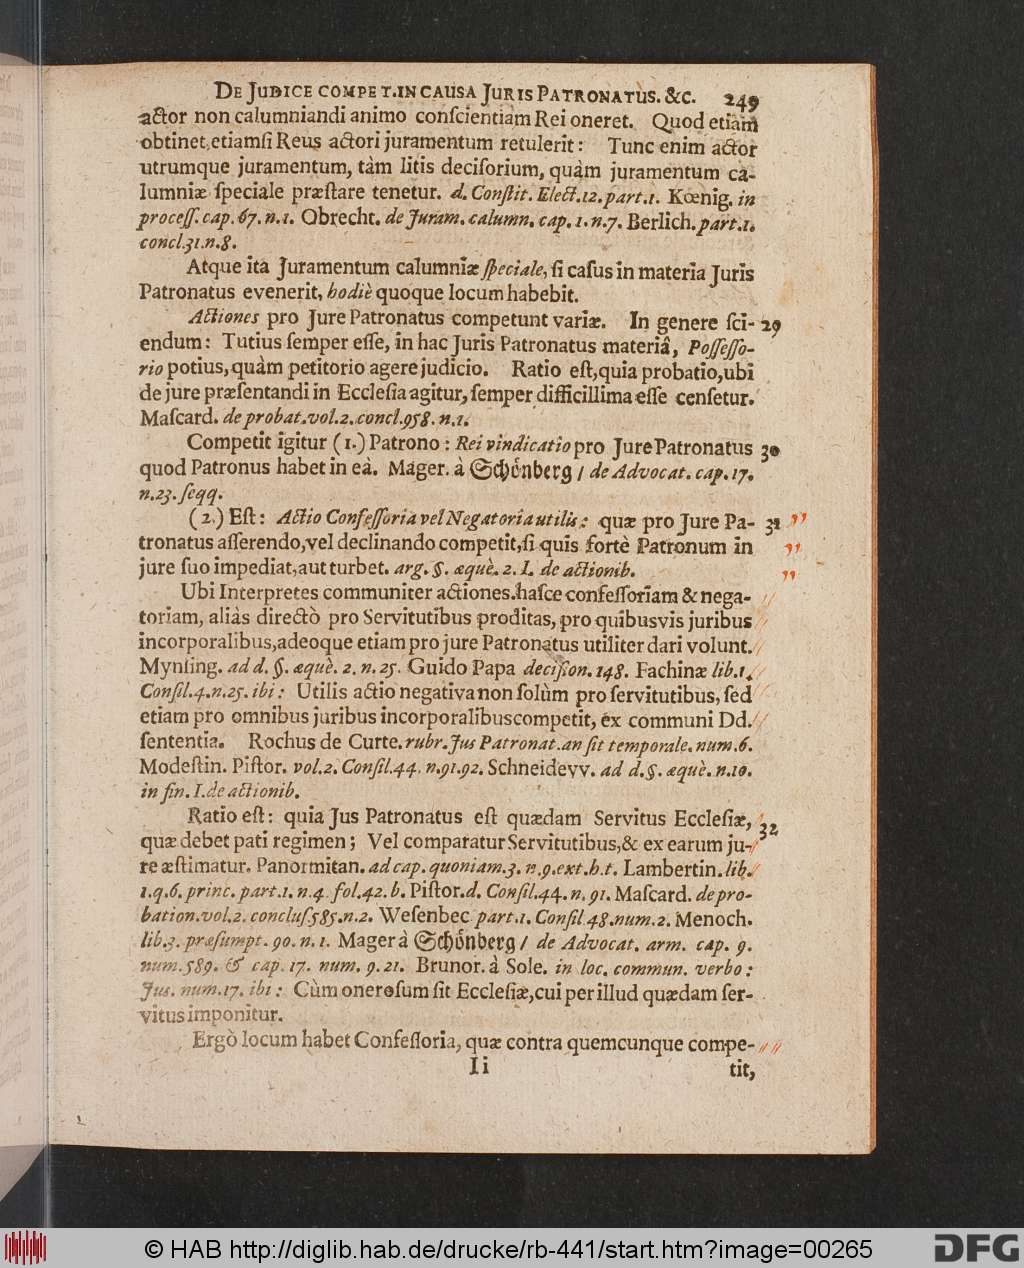 DE JUDICE COMPET. IN CAUSA JURIS PATRONATUS. &c. 249
actor non calumniandi animo conſcientiam Rei oneret. Quod etiam
obtinet, etiamſi Reus actori juramentum retulerit: Tunc enim actor
utrumque juramentum, tàm litis deciſorium, quàm juramentum ca-
lumniæ ſpeciale præſtare tenetur. d. Conſtit. Elect. 12. part. 1. Kœnig. in
proceſſ. cap. 67. n. 1. Obrecht. de Juram. calumn. cap. 1. n. 7. Berlich. part. 1.
concl. 31. n. 8.
Atque ita Juramentum calumniæ ſpeciale, ſi caſus in materia Juris
Patronatus evenerit, hodiè quoque locum habebit.
Actiones pro Jure Patronatus competunt variæ. In genere ſci- 29
endum: Tutius ſemper eſſe, in hac Juris Patronatus materiâ, Poſſeſſo-
rio potius, quàm petitorio agere judicio. Ratio eſt, quia probatio, ubi
de jure præſentandi in Eccleſia agitur, ſemper difficillima eſſe cenſetur.
Maſcard. de probat. vol. 2. concl. 958. n. 1.
Competit igitur (1.) Patrono: Rei vindicatio pro Jure Patronatus 30
quod Patronus habet in eâ. Mager. à Schönberg / de Advocat. cap. 17.
n. 23. ſeqq.
(2.) Eſt: Actio Confeſſoria vel Negatoria utilis: quæ pro Jure Pa- 31
tronatus aſſerendo, vel declinando competit, ſi quis fortè Patronum in
jure ſuo impediat, aut turbet. arg. §. æquè. 2. I. de actionib.
Ubi Interpretes communiter actiones haſce confeſſoriam & nega-
toriam, aliàs directò pro Servitutibus proditas, pro quibusvis juribus
incorporalibus, adeoque etiam pro jure Patronatus utiliter dari volunt.
Mynſing. ad d. §. æquè. 2. n. 25. Guido Papa deciſion. 148. Fachinæ lib. 1.
Conſil. 4. n. 25. ibi: Utilis actio negativa non ſolùm pro ſervitutibus, ſed
etiam pro omnibus juribus incorporalibus competit, éx communi Dd.
ſententia. Rochus de Curte. rubr. Jus Patronat. an ſit temporale. num. 6.
Modeſtin. Piſtor. vol. 2. Conſil. 44. n. 91. 92. Schneidevv. ad d. §. æquè. n. 10.
in fin. I. de actionib.
Ratio eſt: quia Jus Patronatus eſt quædam Servitus Eccleſiæ, 32
quæ debet pati regimen; Vel comparatur Servitutibus, & ex earum ju-
re æſtimatur. Panormitan. ad cap. quoniam. 3. n. 9. ext. h. t. Lambertin. lib.
1. q. 6. princ. part. 1. n. 4. fol. 42. b. Piſtor. d. Conſil. 44. n. 91. Maſcard. de pro-
bation. vol. 2. concluſ. 585. n. 2. Weſenbec part. 1. Conſil 48. num. 2. Menoch.
lib. 3. præſumpt. 90. n. 1. Mager à Schönberg / de Advocat. arm. cap. 9.
num. 589. & cap. 17. num. 9. 21. Brunor. à Sole. in loc. commun. verbo:
Jus. num. 17. ibi: Cùm oneroſum ſit Eccleſiæ, cui per illud quædam ſer-
vitus imponitur.
Ergò locum habet Confeſſoria, quæ contra quemcunque compe-
Ii tit,
© HAB http://diglib.hab.de/drucke/rb-441/start.htm?image=00265 DFG